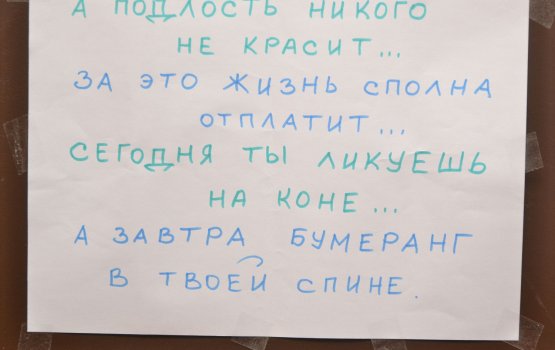 А ПОДЛОСТЬ НИКОГО
НЕ КРАСИТ...
ЗА ЭТО ЖИЗНЬ СПОЛНА
ОТПЛАТИТ...
СЕГОДНЯ ТЫ ЛИКУЕШЬ
НА КОНЕ...
А ЗАВТРА БУМЕРАНГ
В ТВОЕЙ СПИНЕ.